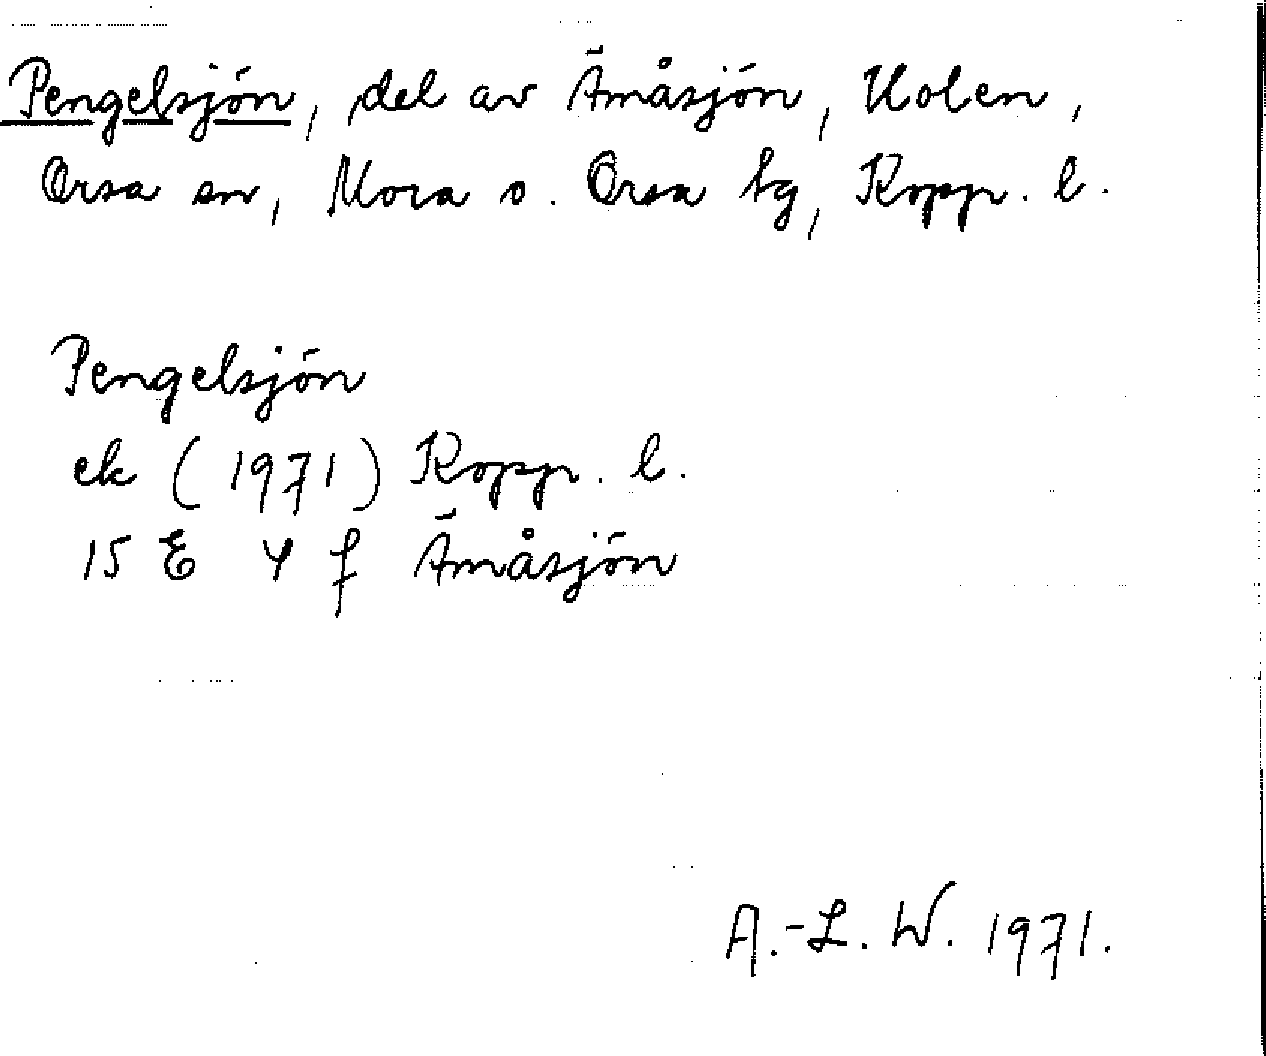 Pengelsjön, del av Ämåsjön, Kolen,
Orsa sn, Mora o. Orsa tg, Kopp. l.
Pengelsjön
ek (1971) Kopp. l.
15 E 4 f Ämåsjön
A.-L. W. 1971.